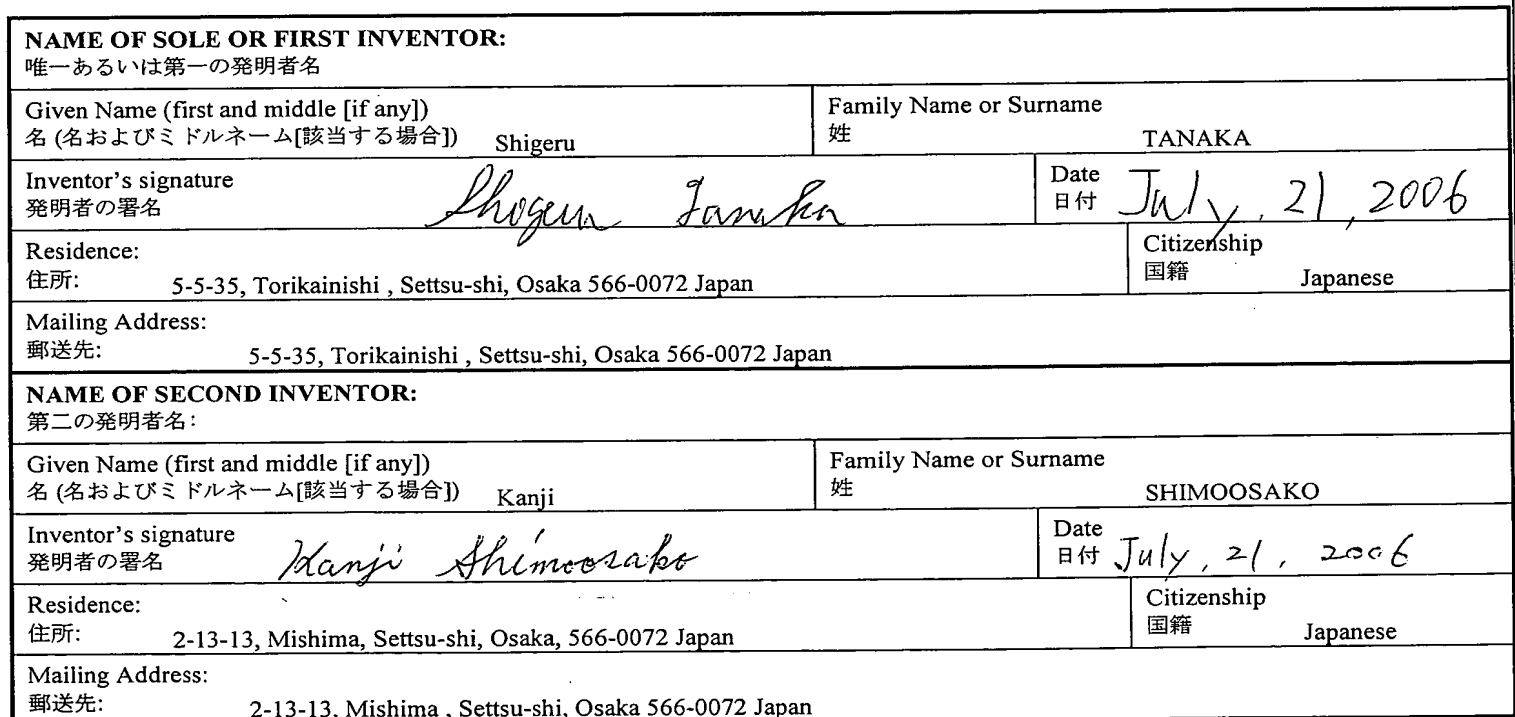 NAME OF SOLE OR FIRST INVENTOR:
唯一あるいは第一の発明者名
Given Name (first and middle [if any])
名 (名およびミドルネーム[該当する場合]) Shigeru
Family Name or Surname
姓 TANAKA
Inventor's signature
発明者の署名 Shigeru Tanaka
Date
日付 July, 21, 2006
Residence:
住所: 5-5-35, Torikainishi , Settsu-shi, Osaka 566-0072 Japan
Citizenship
国籍 Japanese
Mailing Address:
郵送先: 5-5-35, Torikainishi , Settsu-shi, Osaka 566-0072 Japan
NAME OF SECOND INVENTOR:
第二の発明者名:
Given Name (first and middle [if any])
名 (名およびミドルネーム[該当する場合]) Kanji
Family Name or Surname
姓 SHIMOOSAKO
Inventor's signature
発明者の署名 Kanji Shimoosako
Date
日付 July, 21, 2006
Residence:
住所: 2-13-13, Mishima, Settsu-shi, Osaka, 566-0072 Japan
Citizenship
国籍 Japanese
Mailing Address:
郵送先: 2-13-13, Mishima , Settsu-shi, Osaka 566-0072 Japan